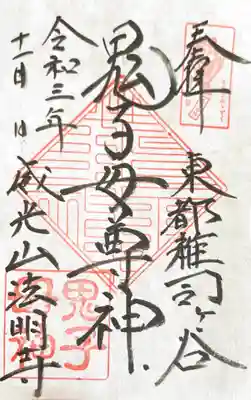 奉拝
東都雑司ヶ谷
鬼子母尊神
令和三年
十一月 日
威光山法明寺
鬼子
母神